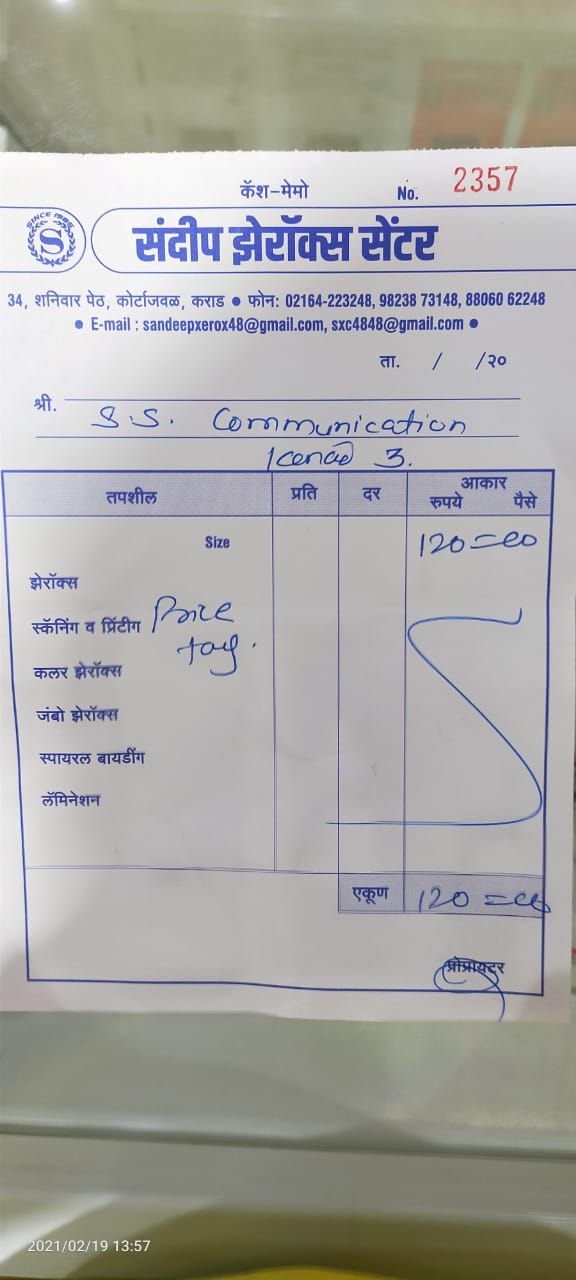 कॅश-मेमो No. 2357
SINCE 1985
S
संदीप झेरॉक्स सेंटर
34, शनिवार पेठ, कोर्टाजवळ, कराड ● फोन: 02164-223248, 98238 73148, 88060 62248
● E-mail : sandeepxerox48@gmail.com, sxc4848@gmail.com ●
ता. / /२०
श्री. S.S. Communication
3.
तपशील प्रति दर आकार
रुपये पैसे
Size 120=00
झेरॉक्स
स्कॅनिंग व प्रिंटीग Price
tag.
कलर झेरॉक्स
जंबो झेरॉक्स
स्पायरल बायडींग
लॅमिनेशन
एकूण 120=00
प्रोप्रायटर
2021/02/19 13:57